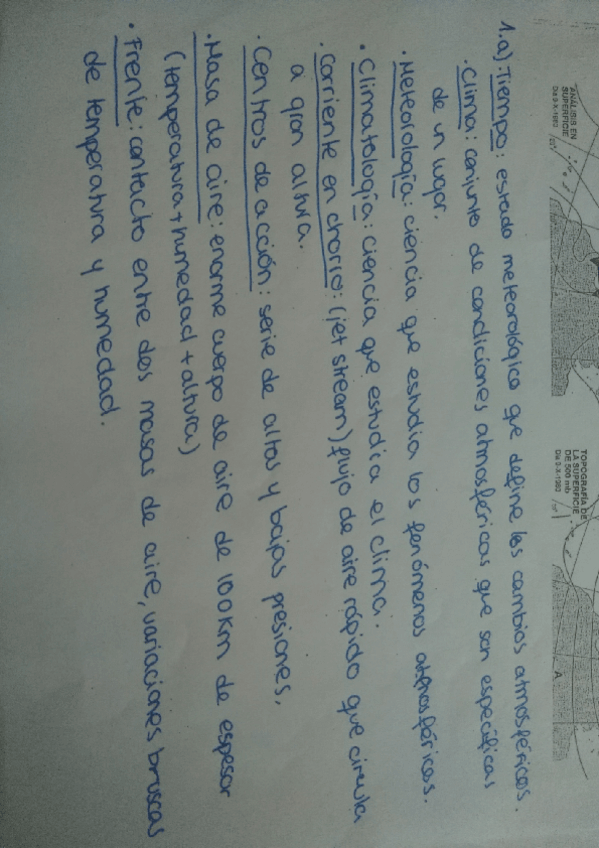 ANÁLISIS EN
SUPERFICIE
TOPOGRAFÍA DE
LA SUPERFICIE
DE 500 mb
A
1.a) · Tiempo: estado meteorológico que define los cambios atmosféricos.
· Clima: conjunto de condiciones atmosféricas que son específicas
de un lugar.
· Meteorología: ciencia que estudia los fenómenos atmosféricos.
· Climatología: ciencia que estudia el clima.
· Corriente en chorro: (jet stream) flujo de aire rápido que circula
a gran altura.
· Centros de acción: serie de altas y bajas presiones,
· Masa de aire: enorme cuerpo de aire de 100km de espesor
(temperatura + humedad + altura)
· Frente: contacto entre dos masas de aire, variaciones bruscas
de temperatura y humedad.